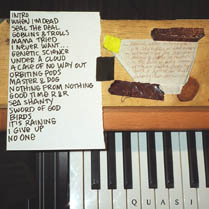 INTRO
WHEN I'M DEAD
SEAL THE DEAL
GOBLINS & TROLLS
MAMA TRIED
I NEVER WANT...
GENETIC SCIENCE
UNDER A CLOUD
A CASE OF NO WAY OUT
ORBITING PODS
MASTER & DOG
NOTHING FROM NOTHING
GOOD TIME R&R
SEA SHANTY
SWORD OF GOD
BIRDS
IT'S RAINING
I GIVE UP
NO ONE
QUASI